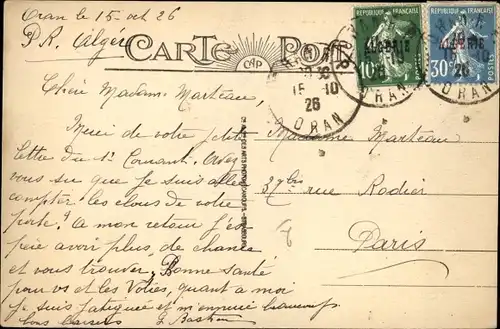 Oran le 15 oct 26
P.R. Alger
CARTE POSTALE
CAP
RÉPUBLIQUE FRANÇAISE
ALGÉRIE
10
POSTES
RÉPUBLIQUE FRANÇAISE
ALGÉRIE
30
POSTES
15-10
26
ORAN
Chère Madame Marteau,
Merci de votre petite
lettre du 11 Courant. Avez
vous su que je suis allée
compter les clous de votre
porte? A mon retour j'es
père avoir plus de chance
et vous trouver. Bonne Santé
pour vs et les Vôtres, quant a moi
je suis fatiguée et m'ennuie beaucoup
bons baisers
Madame Marteau
37bis rue Rodier
Paris